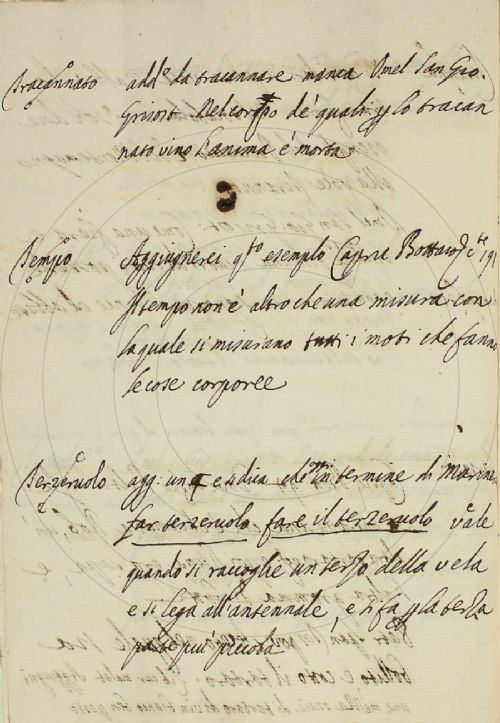 Tracannato add.o da tracannare manca Omel San Gio.
Grisost. Nel corpo de' quali p lo tracan
nato vino l'anima è morta
Tempo Aggiugnerei q.to esempio Capric. Bottaio c.te 191
Il tempo non è altro che una misura con
la quale si misurano tutti i moti che fanno
le cose corporee
Terzeruolo agg: un e si dica che in termine di Marina
far terzeruolo fare il terzeruolo vale
quando si raccoglie un terzo della vela
e si lega all'antennale, e si fa p la terza
parte più piccola